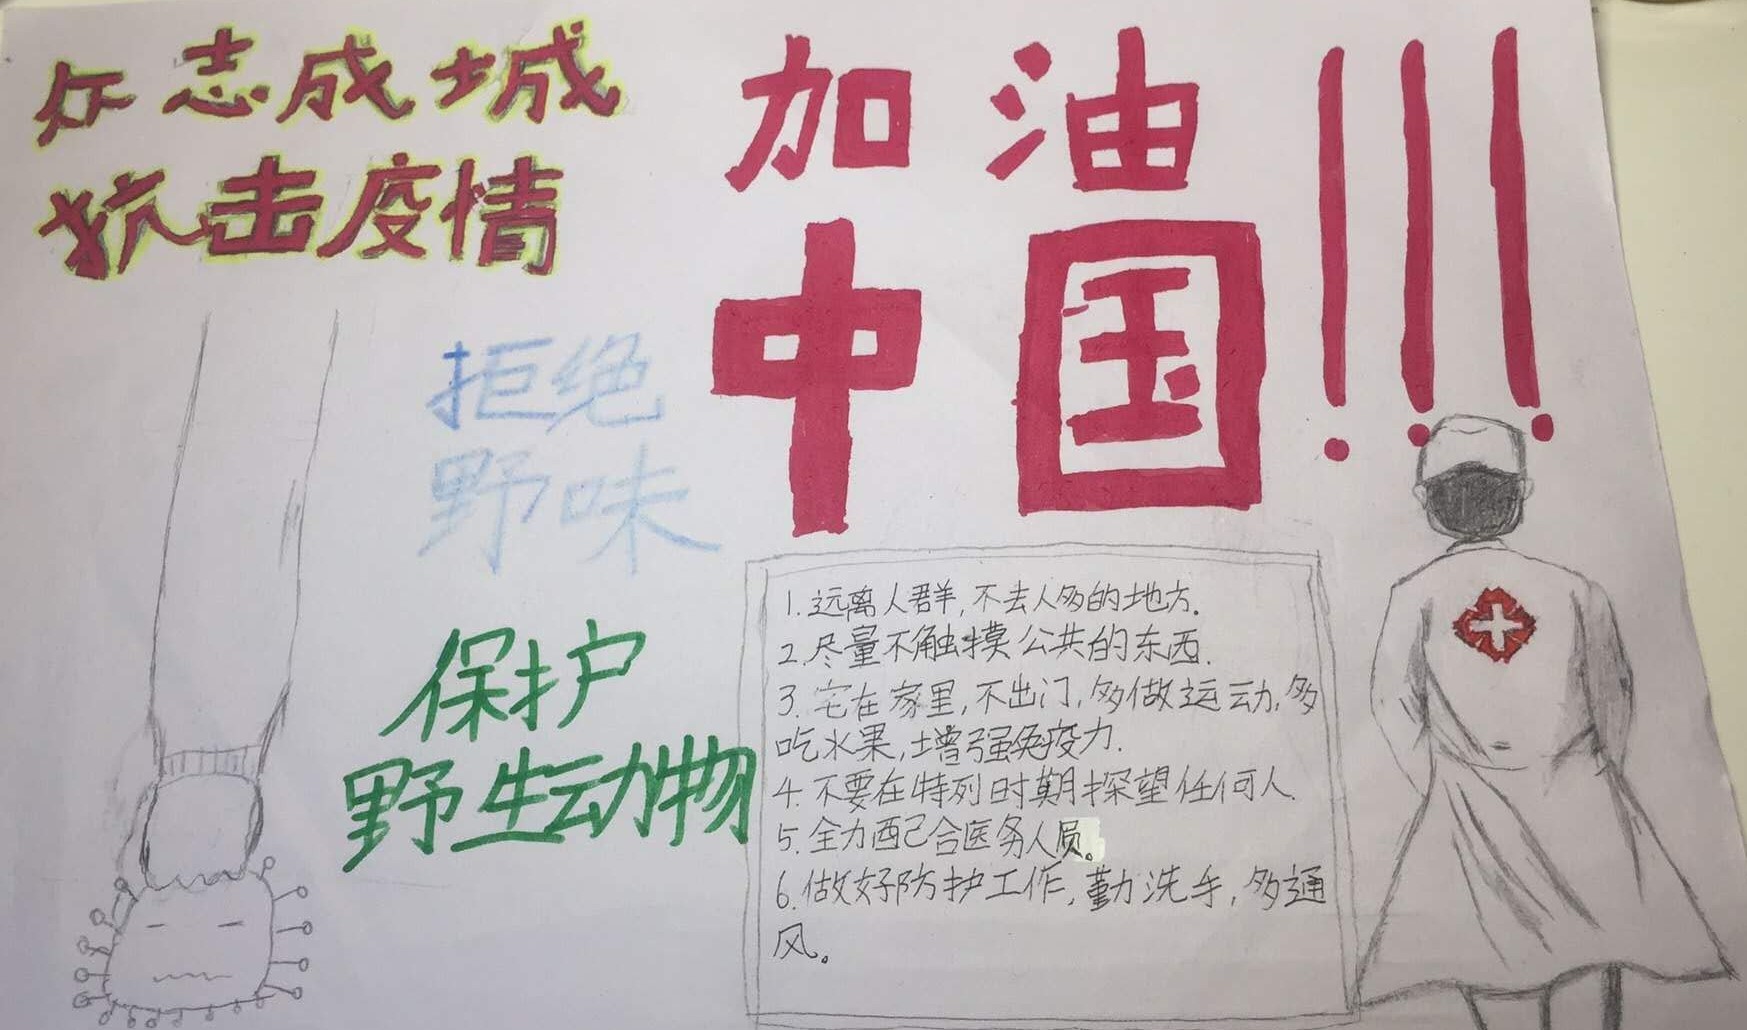 众志成城
抗击疫情
加油
中国!!!
拒绝
野味
保护
野生动物
1.远离人群,不去人多的地方.
2.尽量不触摸公共的东西.
3.宅在家里,不出门,多做运动,多
吃水果,增强免疫力.
4.不要在特列时期探望任何人.
5.全力配合医务人员。
6.做好防护工作,勤洗手,多通
风。